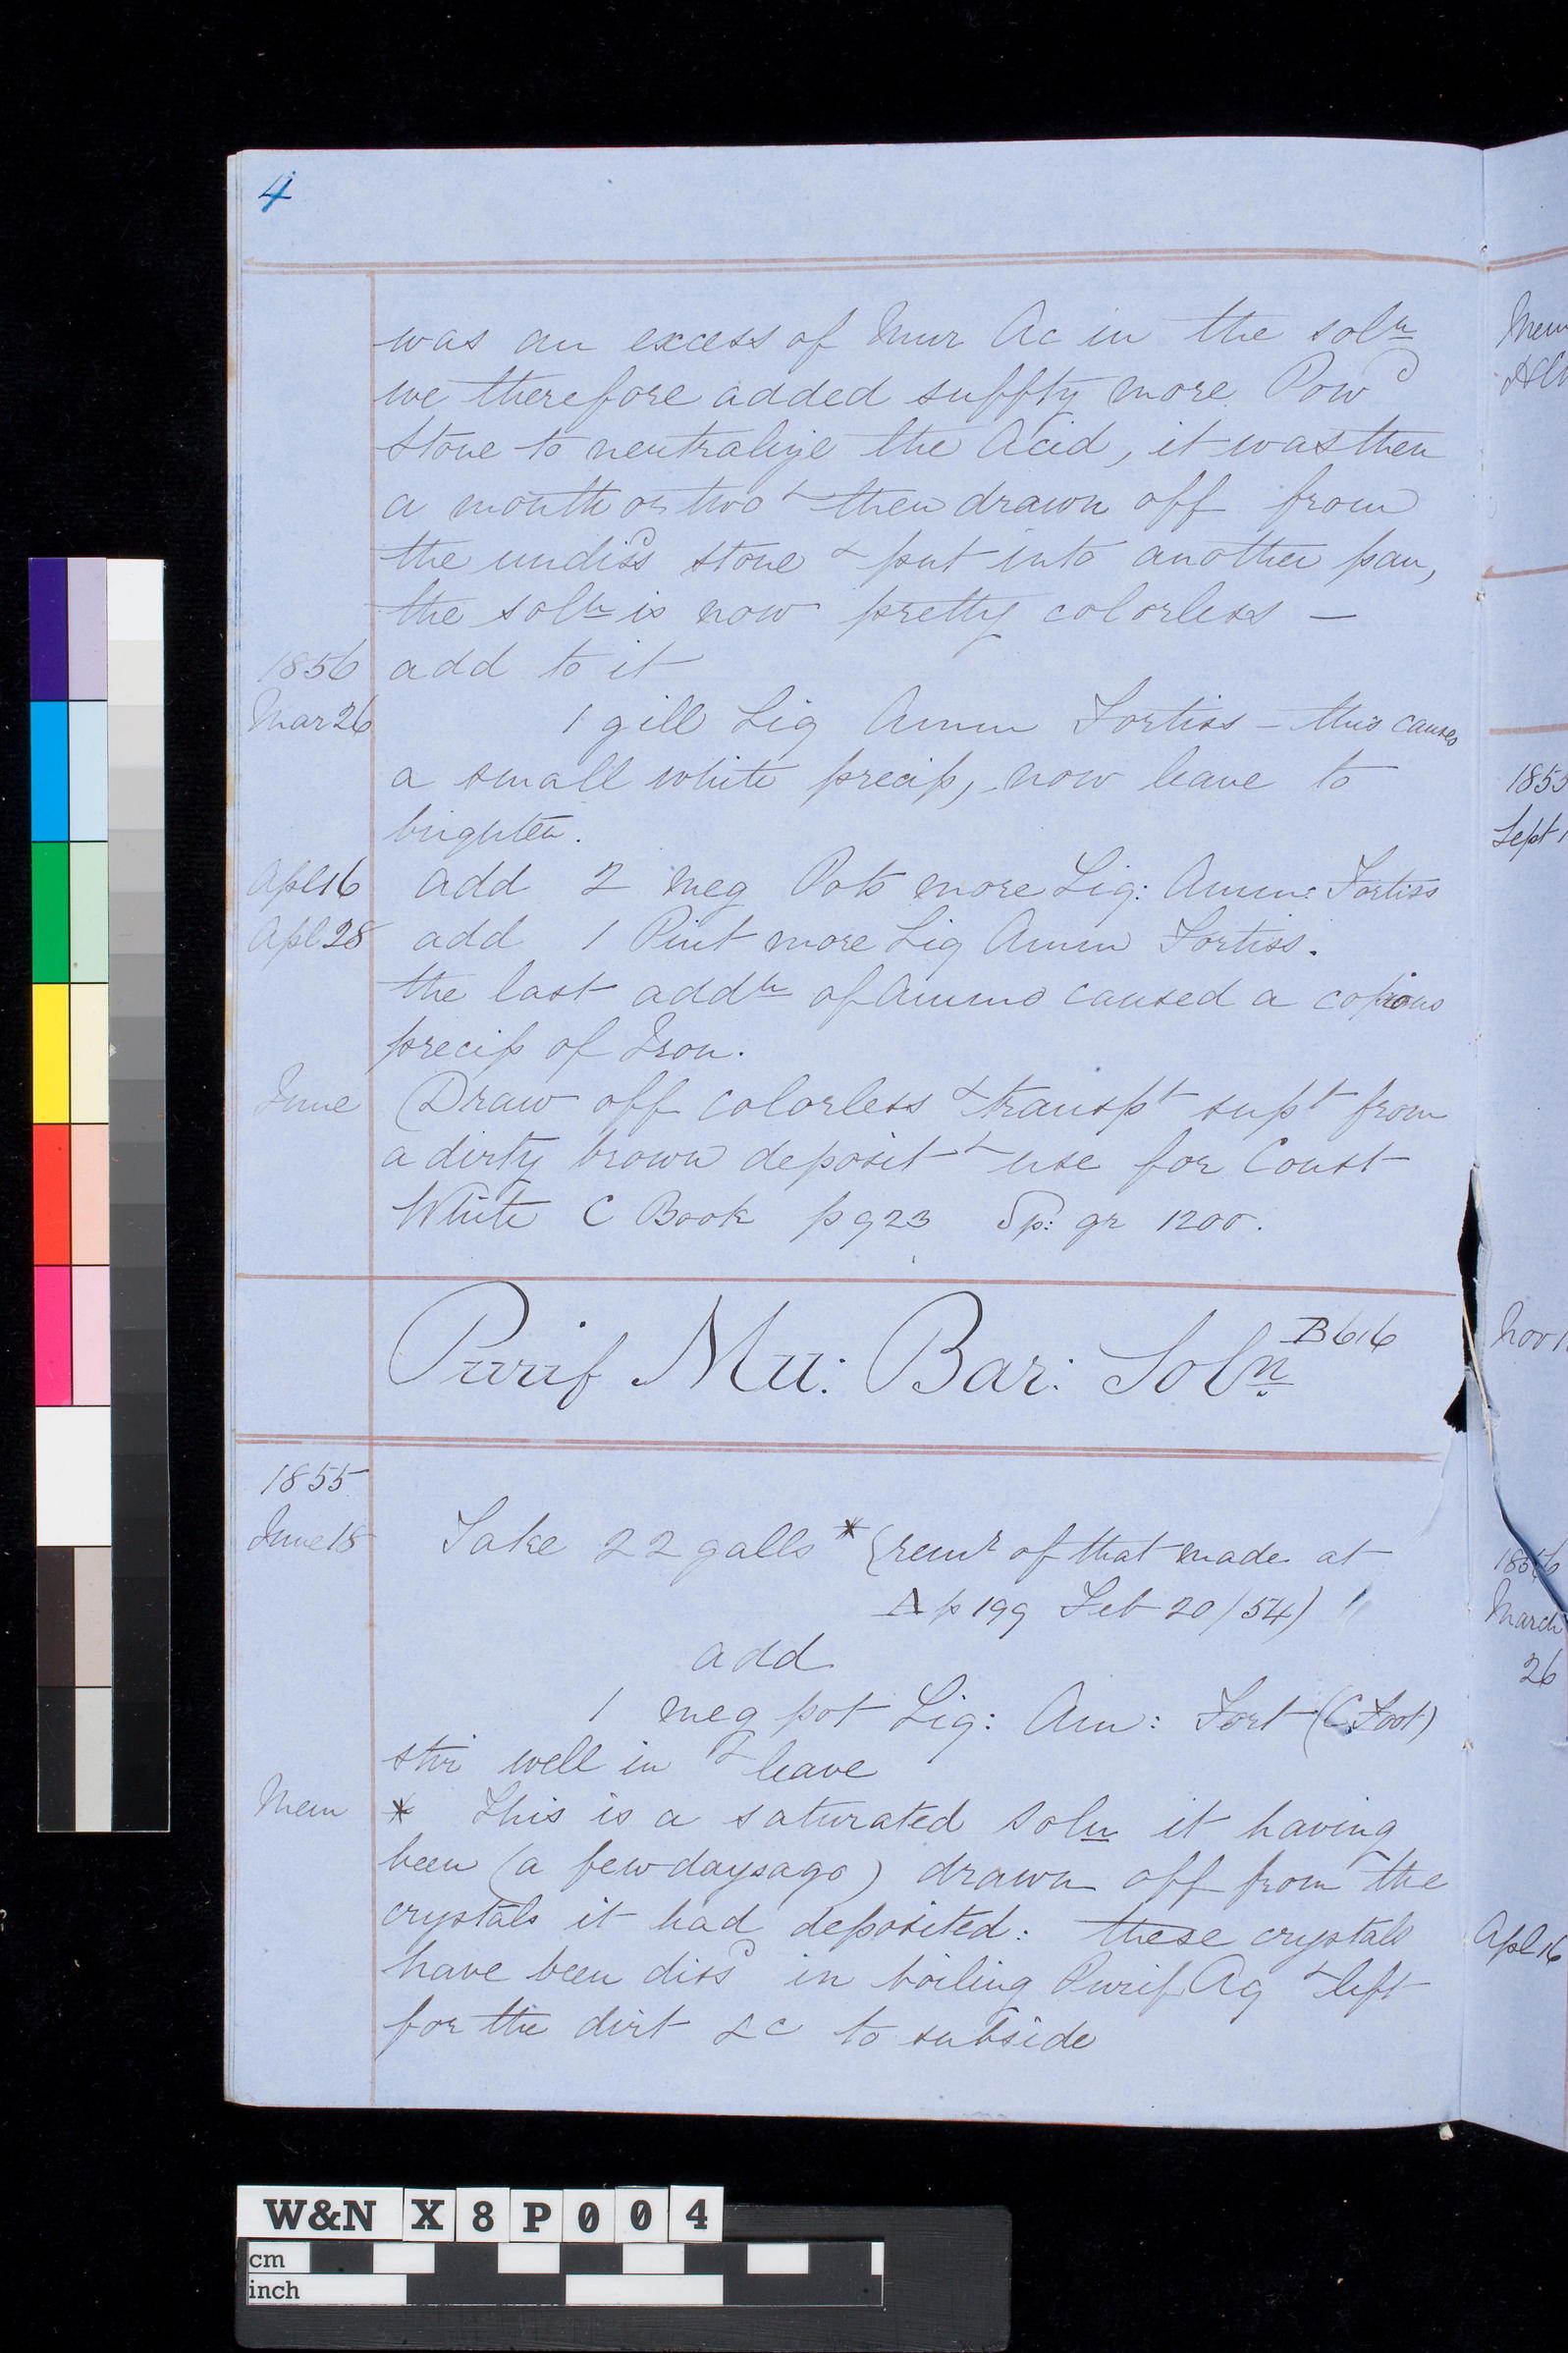 4
was an excess of Mur Ac in the soln
we therefore added suffty more Powd
Stone to neutralize the Acid, it was then
a month or two & then drawn off from
the undissd stone & put into another pan,
the soln is now pretty colorless —
1856 add to it
Mar 26 1 gill Liq Amm Fortiss – this causes
a small white precip, now leave to
brighten.
Apl 16 add 2 meg Pots more Liq: Amm: Fortiss
Apl 28 add 1 Pint more Liq Amm Fortiss.
the last addn of Ammo caused a copious
precip of Iron.
June (Draw off colorless & transpt supt from
a dirty brown deposit & use for Const
White C Book p 923 Sp: gr 1200.
Purif Mu: Bar: Soln B616
1855
June 18 Take 22 galls * (remr of that made at
A p 199 Feb 20/54)
add
1 meg pot Liq: Am: Fort (C Foot)
stir well in & leave
Mem * This is a saturated soln it having
been (a few days ago) drawn off from the
crystals it had deposited: these crystals
have been dissd in boiling Purif Aq & left
for the dirt &c to subside
Mem
1855
Sept 1
Nov 1
1856
March
26
Apl 16
W&N X 8 P 0 0 4
cm
inch